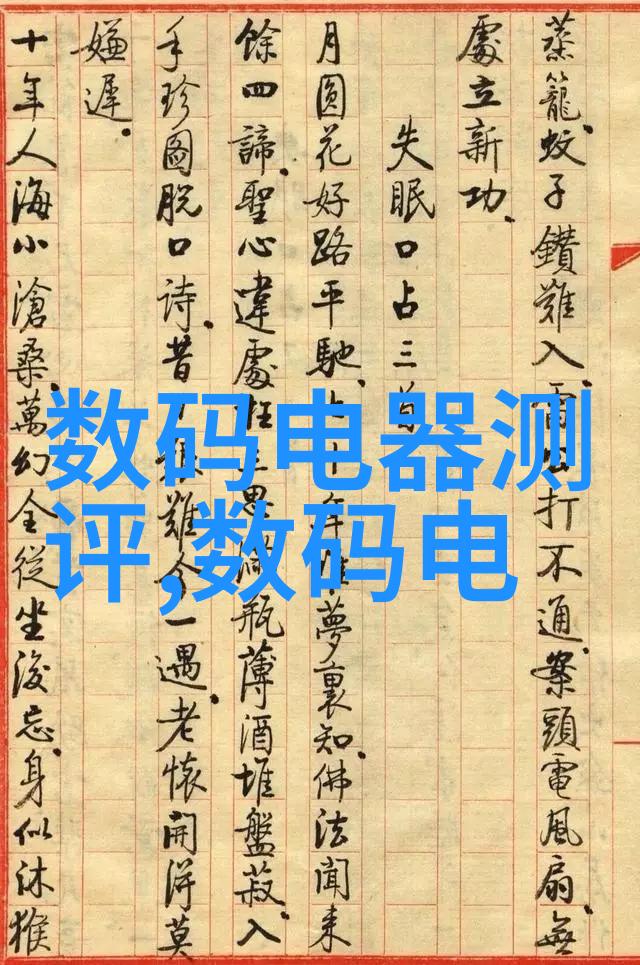 蒸籠蚊子鑽難入雷打不通案頭電風扇無
處立新功
失眠口占三首
月圓花好路平馳七十年惟夢裏知佛法聞来
餘四諦聖心違處思瓶薄酒堆盤菽入
手珍圖脱口詩昔難今一遇老懷開得莫
嫌遲
十年人海小滄桑萬幻全從坐後忘身似沐猴
数码电器测
评,数码电